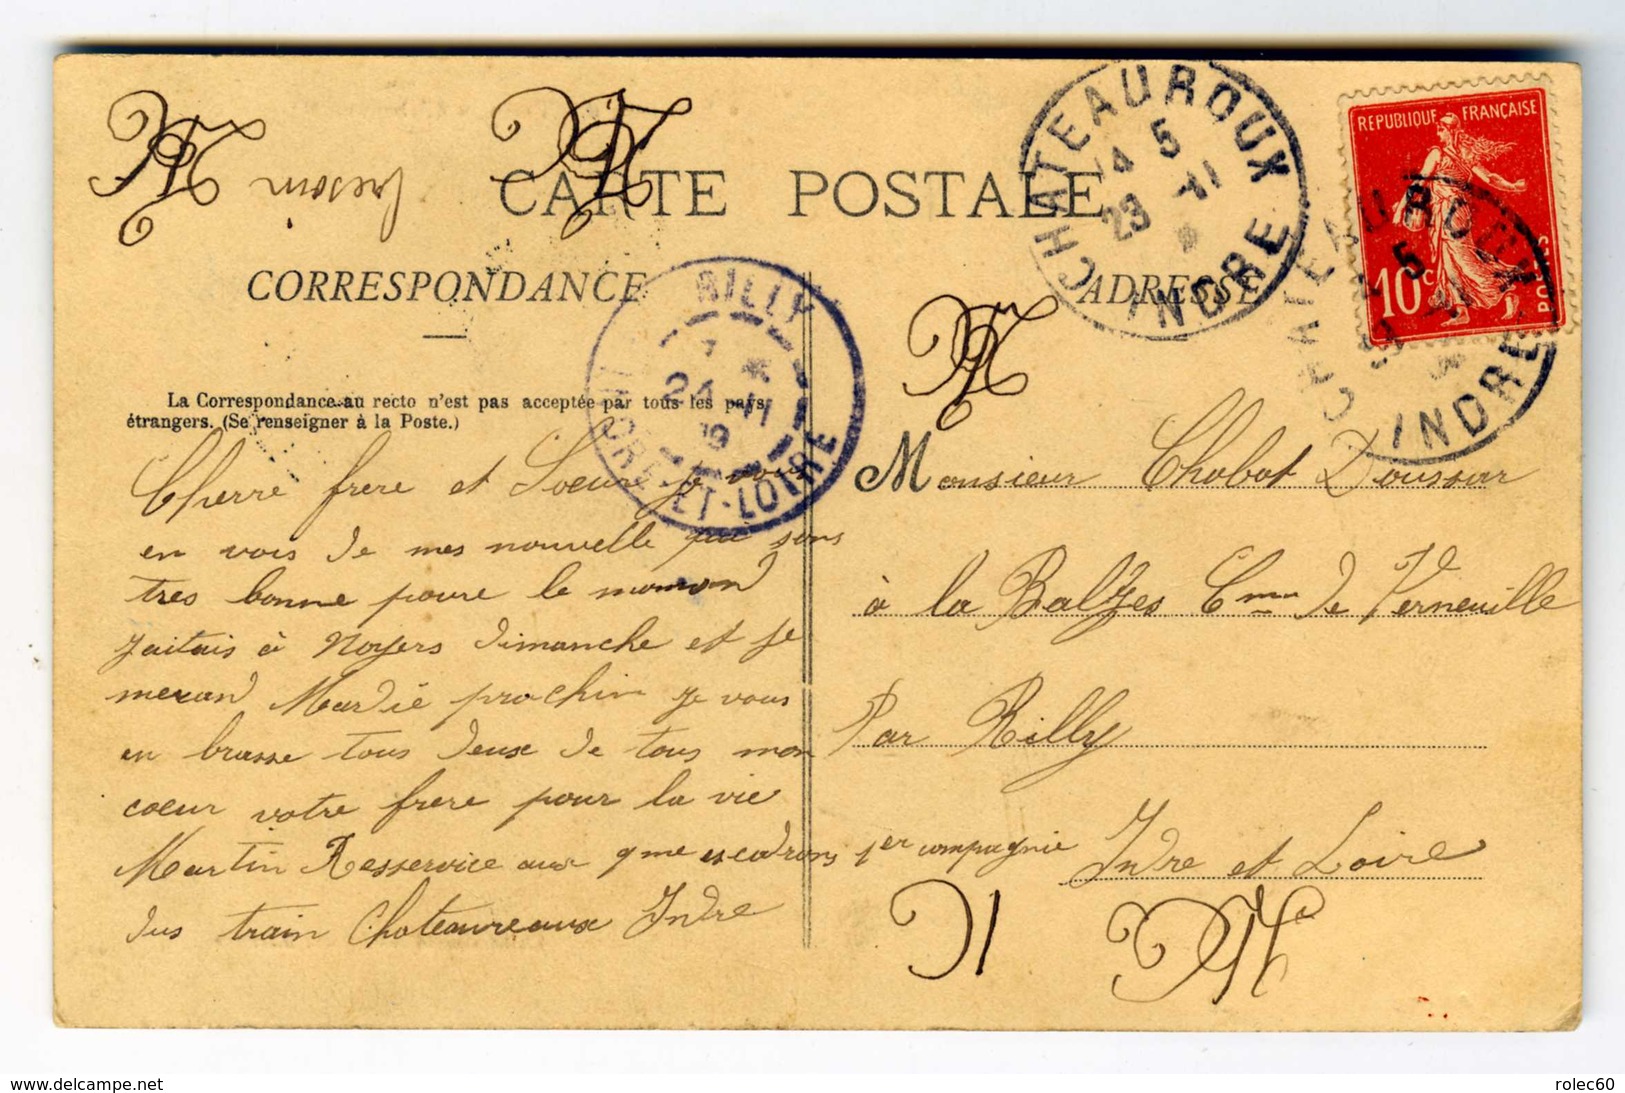 bresoin
CARTE POSTALE
CORRESPONDANCE
ADRESSE
La Correspondance au recto n'est pas acceptée par tous les pays
étrangers. (Se renseigner à la Poste.)
Cherre frere et Soeur je vous
en vois de mes nouvelle qui sons
tres bonne poure le momond
jaitais à Noyers dimanche et je
meran Mardie prochin je vous
en brasse tous deux de tous mon
coeur votre frere pour la vie
Martin Resservice aux 9me escadrons 1er compagnie
dus train Chateaureaux Indre
Monsieur Chobot Doussur
à la Balzes Cmne de Verneuille
Par Rilly
Indre et Loire
CHATEAUROUX
14 5
23 -11
INDRE
REPUBLIQUE FRANÇAISE
10c
POSTES
CHATEAUROUX
5
INDRE
RILLY
24 11
INDRE-ET-LOIRE
www.delcampe.net
rolec60